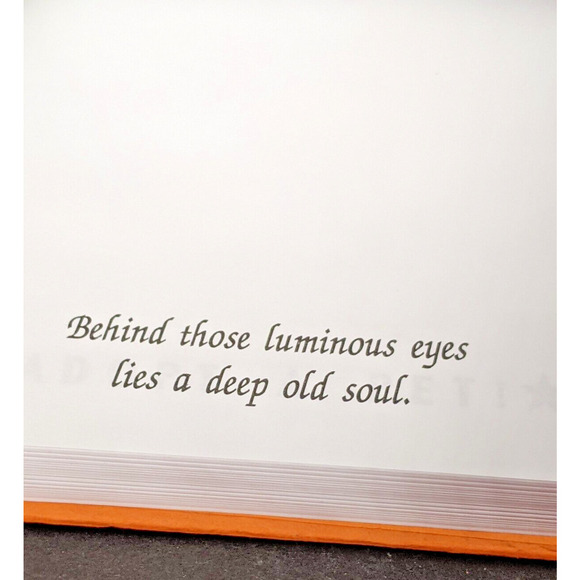 Behind those luminous eyes
lies a deep old soul.